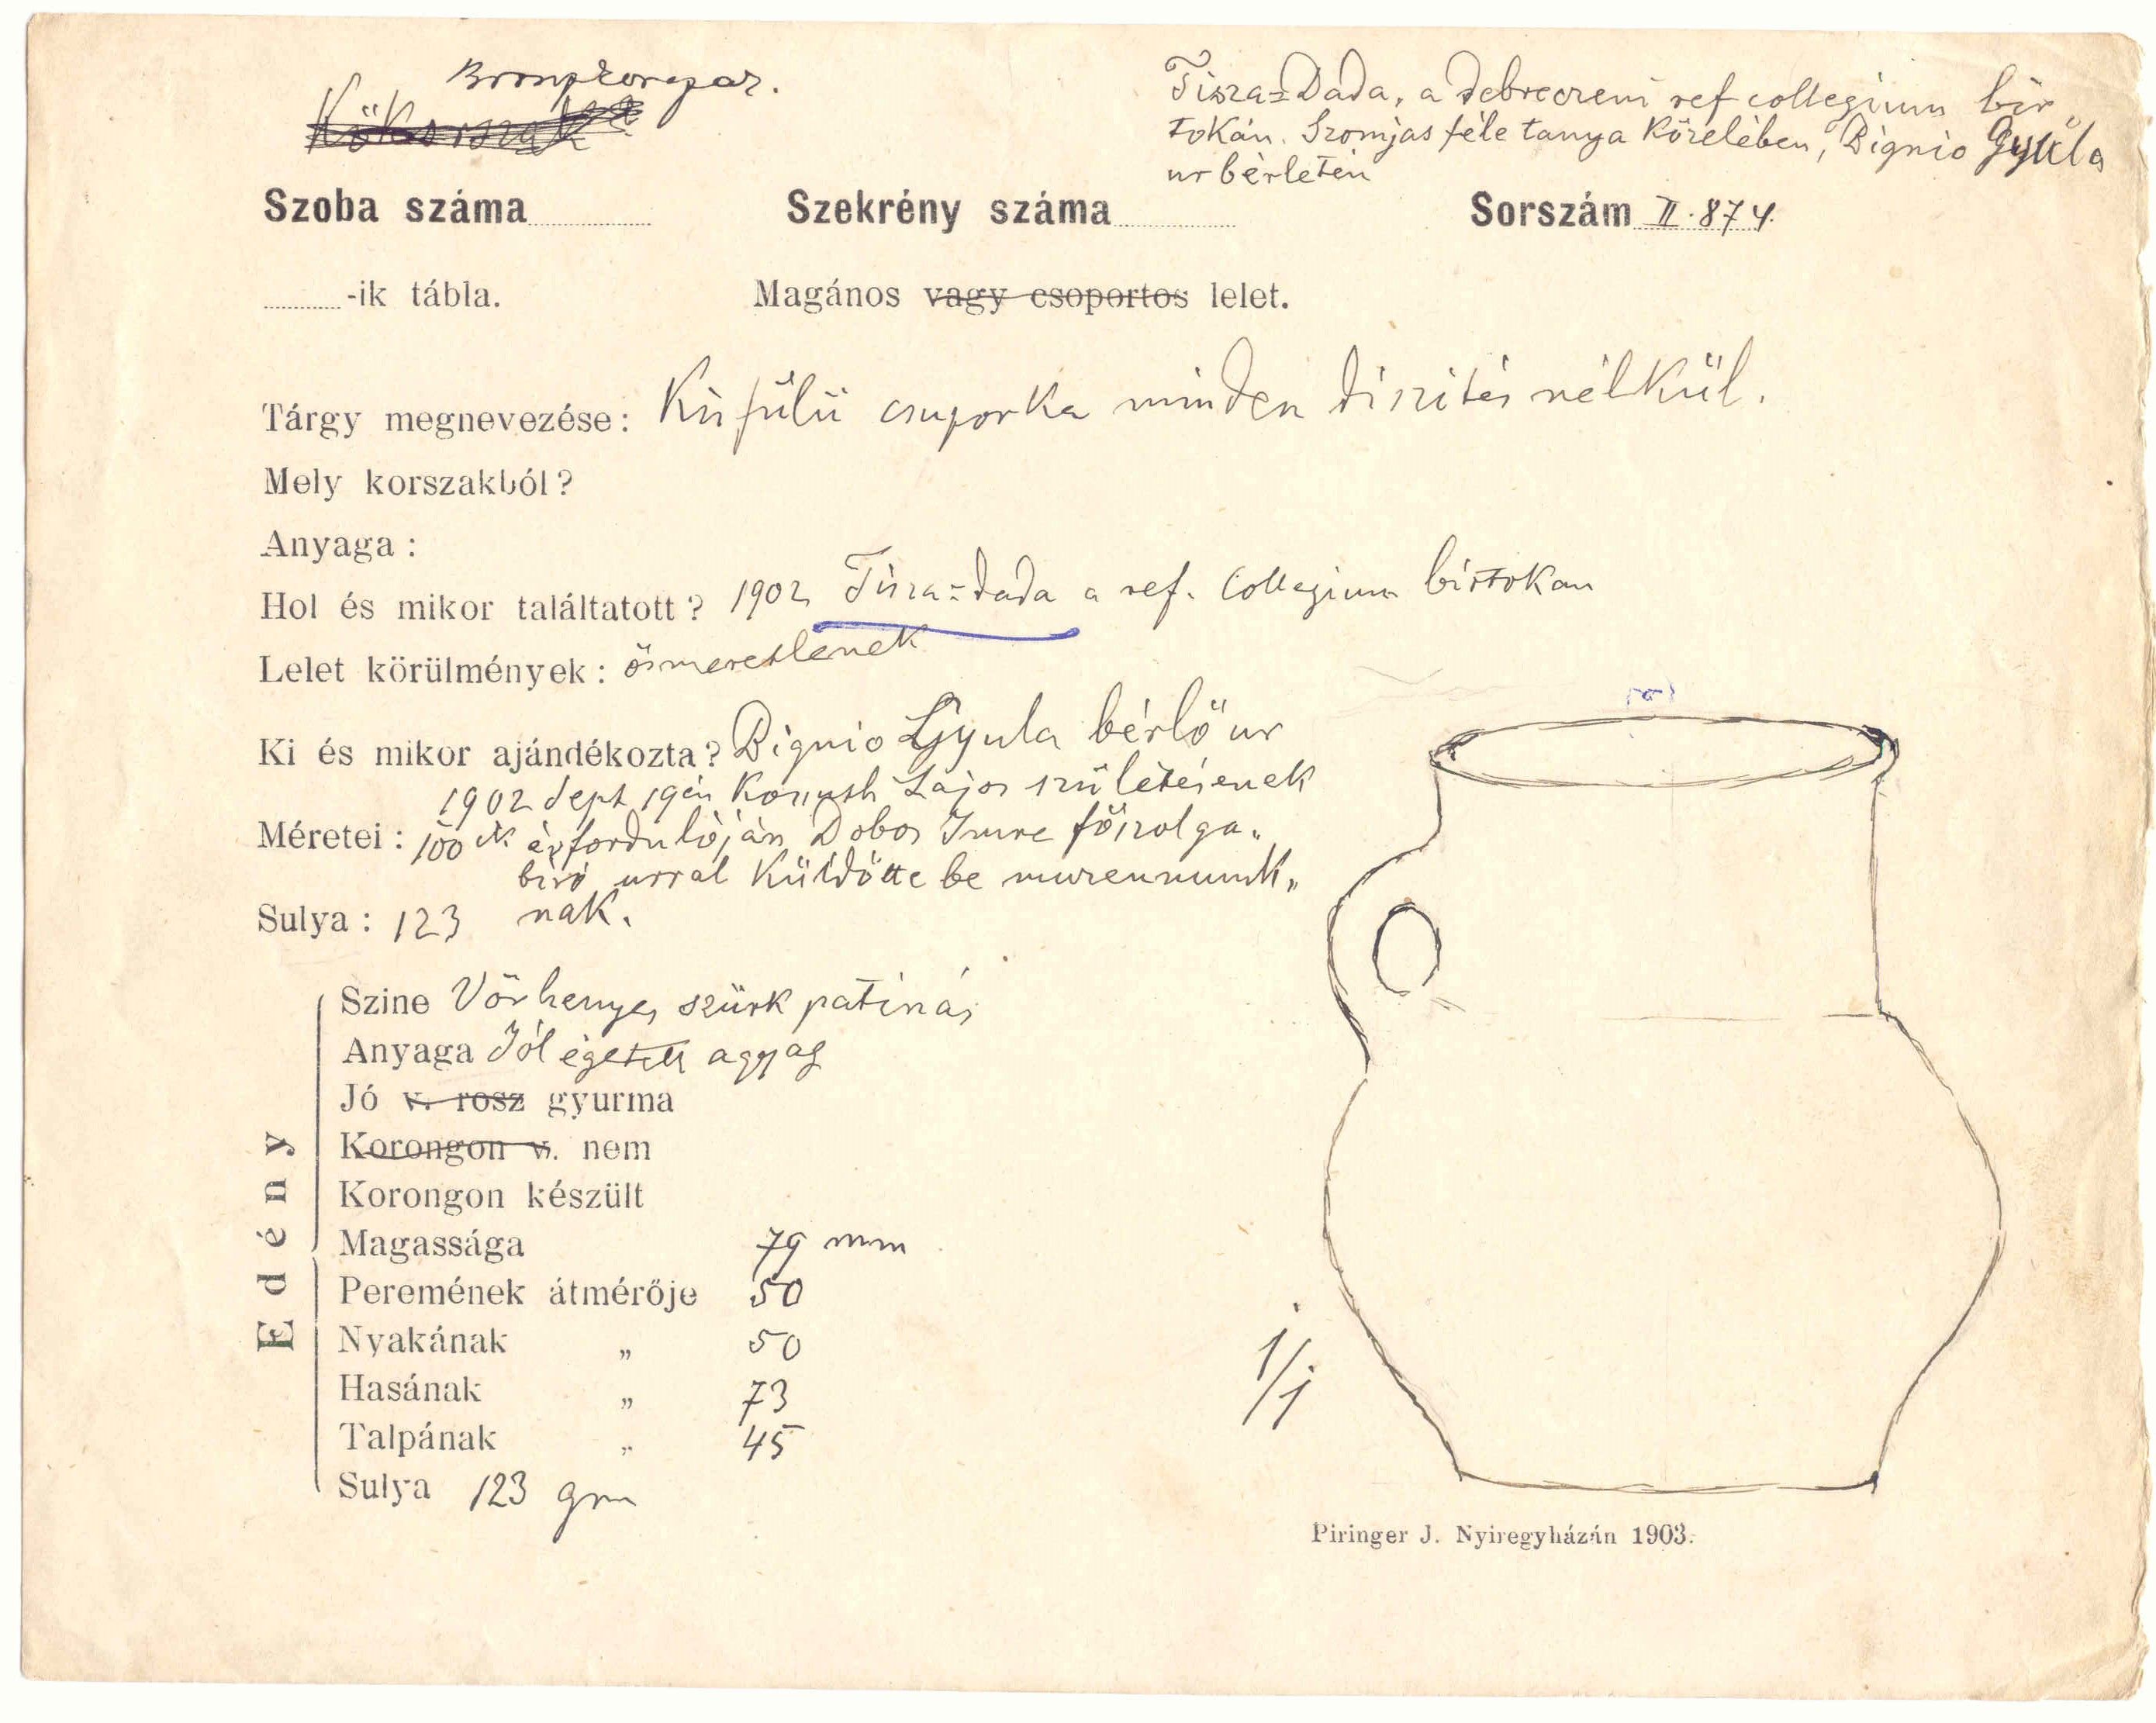 Bronzkorszak.
Kőkorszak
Tisza=Dada, a debreczeni ref collegium bir
tokán. Szomjas féle tanya közelében, Bignio Gyula
ur bérletén
Szoba száma
Szekrény száma
Sorszám II. 874.
-ik tábla.
Magános vagy csoportos lelet.
Tárgy megnevezése: Kis fülü csuporka minden diszités nélkül.
Mely korszakból?
Anyaga:
Hol és mikor találtatott? 1902 Tisza=dada a ref. Collegium birtokan
Lelet körülmények: ösmeretlenek
Ki és mikor ajándékozta? Bignio Gyula bérlő ur
1902 Sept 19én Kossuth Lajos születésének
Méretei: 100 ik évfordulóján Dobos Imre főszolga„
biró urral küldötte be muzeumunk„
Sulya: 123 nak.
Edény
Szine Vörhenyes szürk patinás
Anyaga Jól égetett agyag
Jó v. rosz gyurma
Korongon v. nem
Korongon készült
Magassága 79 mm
Peremének átmérője 50
Nyakának „ 50
Hasának „ 73
Talpának „ 45
Sulya 123 gm
1/1
Piringer J. Nyiregyházán 1903.